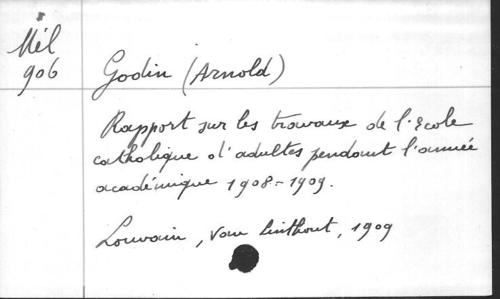 Mél
906
Godin (Arnold)
Rapport sur les travaux de l'Ecole
catholique d'adultes pendant l'année
académique 1908-1909.
Louvain, Van Linthout, 1909